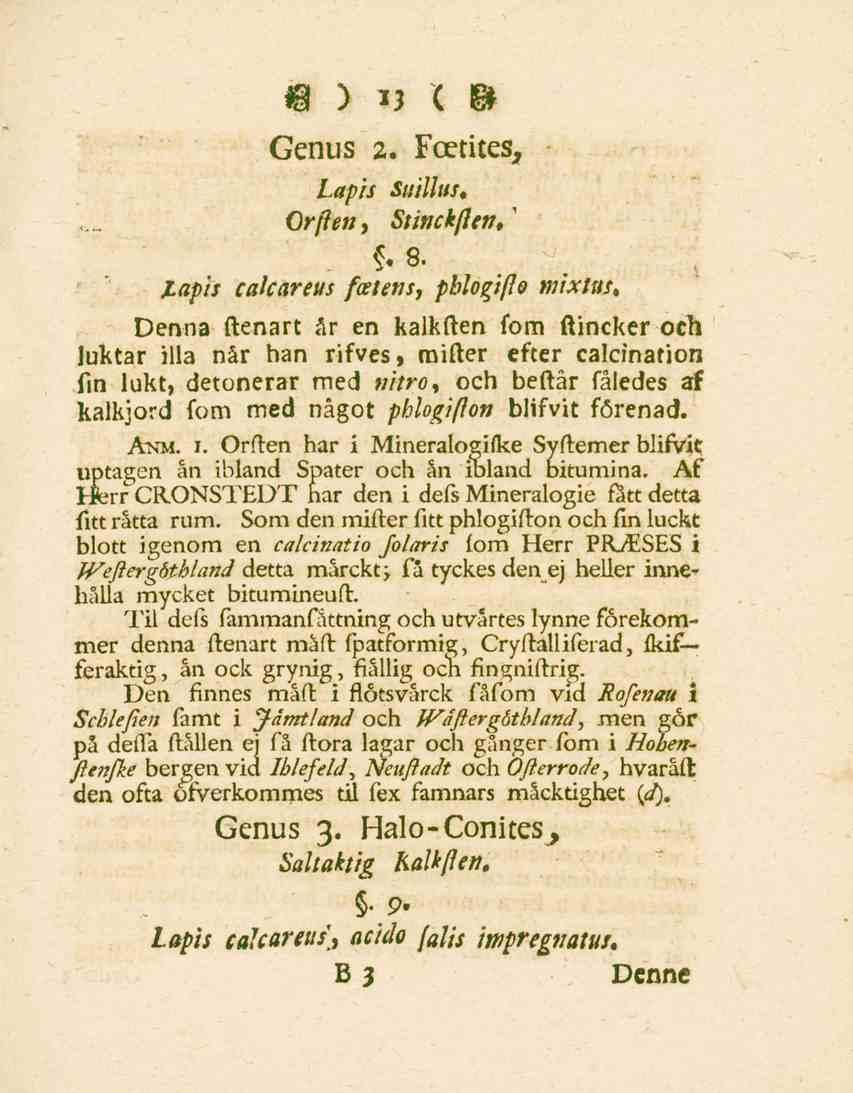 ) 13 (
Genus 2. Fœtites,
Lapis Suillus.
Orſten, Stinckſten.
§. 8.
Lapis calcareus fœtens, phlogiſto mixtus.
Denna ſtenart år en kalkſten ſom ſtincker och
luktar illa når han rifves, miſter efter calcination
ſin lukt, detonerar med nitro, och beſtår ſåledes af
kalkjord ſom med något phlogiſton blifvit förenad.
ANM. 1. Orſten har i Mineralogiſke Syſtemer blifvit
uptagen ån ibland Spater och ån ibland bitumina. Af
Herr CRONSTEDT har den i deſs Mineralogie fått detta
ſitt råtta rum. Som den miſter ſitt phlogiſton och ſin luckt
blott igenom en calcinatio ſolaris ſom Herr PRÆSES i
Weſtergöthland detta mårckt; ſå tyckes den ej heller inne-
hålla mycket bitumineuſt.
Til deſs ſammanſåttning och utvårtes lynne förekom-
mer denna ſtenart måſt ſpatformig, Cryſtalliſerad, ſkif-
feraktig, ån ock grynig, fiållig och fingniſtrig.
Den finnes måſt i flötsvårck ſåſom vid Roſenau i
Schleſien ſamt i Jåmtland och Wåſtergöthland, men gör
på deſſa ſtållen ej ſå ſtora lagar och gånger ſom i Hohen-
ſtenſke bergen vid Ihlefeld, Neuſtadt och Oſterrode, hvaråſt
den ofta öfverkommes til ſex famnars måcktighet (d).
Genus 3. Halo-Conites,
Saltaktig Kalkſten.
§. 9.
Lapis calcareus, acido ſalis impregnatus.
B 3 Denne